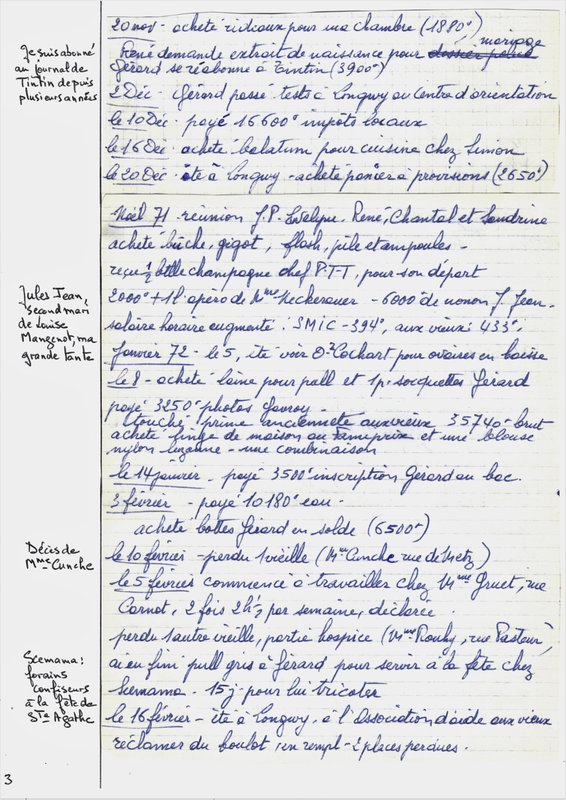 20 nov - acheté rideaux pour ma chambre (1880°)
René demande extrait de naissance pour dossier police mariage
Gérard se réabonne à Tintin (3900°)
Je suis abonné
au journal de
Tintin depuis
plusieurs années
2 Déc - Gérard passé tests à Longwy au Centre d'orientation
le 10 Déc - payé 16600° impôts locaux
le 16 Déc - acheté balatum pour cuisine chez Simon
le 20 Déc - été à Longwy - acheté panier à provisions (2650°)
Noël 71 - réunion J.P. Evelyne. René, Chantal et Sandrine
acheté bûche, gigot, flash, pile et ampoules -
reçu 1/2 btlle champagne chef P.T.T, pour son départ
2000° + 1 l. apéro de Mme Heckerauer - 6000° de nonon J. Jean.
salaire horaire augmenté. SMIC - 394°, aux vieux 433°.
Jules Jean,
second mari
de Louise
Mangenot, ma
grande tante
Janvier 72 - le 5, été voir Dr Cochart pour ovaires en baisse
le 8 - acheté laine pour pull et 1 p. socquettes Gérard
payé 3250° photos
touché prime ancienneté aux vieux 35740° brut
acheté linge de maison au Familprix et une blouse
nylon - une combinaison
le 14 janvier - payé 3500° inscription Gérard au bac.
3 février - payé 10180° eau -
acheté bottes Gérard en solde (6500°)
Décès de
Mme Cunche
le 10 février - perdu 1 vieille (Mme Cunche rue de Metz)
le 5 février commencé à travailler chez Mme Gruet, rue
Carnot, 2 fois 2h1/2 par semaine, déclarée.
perdu 1 autre vieille, partie hospice (Mme Rouhy, rue Pasteur)
ai eu fini pull gris à Gérard pour servir à la fête chez
Scemama - 15 j. pour lui tricoter
Scemama :
forains
confiseurs
à la fête de
Ste Agathe
le 16 février - été à Longwy, à l'Association d'aide aux vieux
réclamer du boulot, en rempl - 2 places perdues.
3